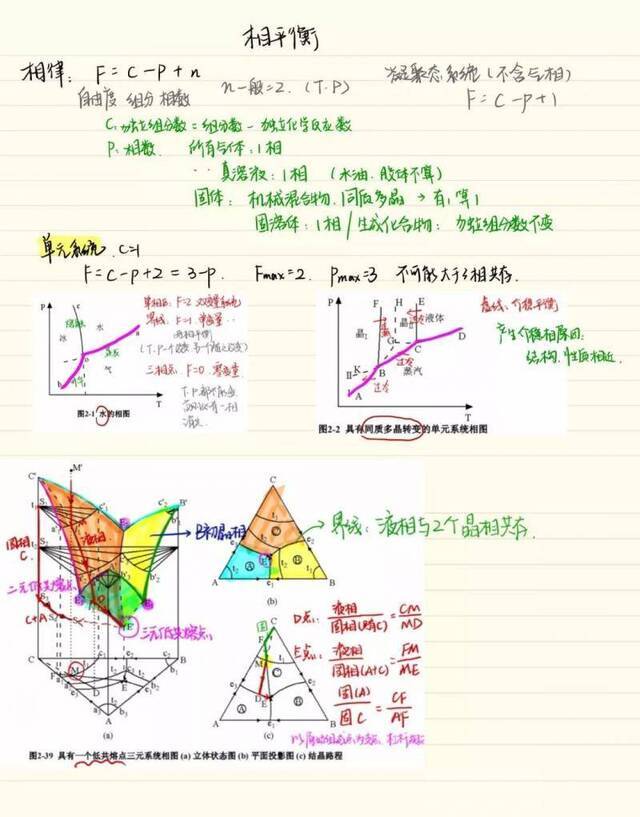 相平衡
相律: F = C - P + n
n一般=2. (T. P)
凝聚态系统 (不含气相)
F = C - P + 1
自由度 组分 相数
C: 独立组分数 = 组分数 - 独立化学反应数
P: 相数. 所有气体: 1相
真溶液: 1相 (水油. 胶体不算)
固体: 机械混合物. 同质多晶 → 有1算1
固溶体: 1相 / 生成化合物: 独立组分数不变
单元系统. C=1
F = C - P + 2 = 3 - P. Fmax = 2. Pmax = 3 不可能大于3相共存.
P
c
冰
水
a
o
b
汽
T
图2-1 水的相图
单相区: F=2
界线: F=1 单变量
两相平衡
三相点: F=0
P
F H E
晶I
晶II
液体
G
C
D
K
B
蒸汽
过冷
I
A
T
图2-2 具有同质多晶转变的单元系统相图
虚线: 介稳平衡
产生介稳原因:
结构. 性质相近.
M'
C'
B'
液相
固相
C.
C+A
二元低共熔点
三元低共熔点
B初晶相
C
A
B
M
E
(a)
C
A
B
(b)
界线: 液相与2个晶相共存.
C
F
M
D
E
A
B
(c)
D点: 液相 / 固相(纯C) = CM / MD
E点: 液相 / 固相(A+C) = FM / ME
固(A) / 固C = CF / AF
图2-39 具有一个低共熔点三元系统相图 (a) 立体状态图 (b) 平面投影图 (c) 结晶路程